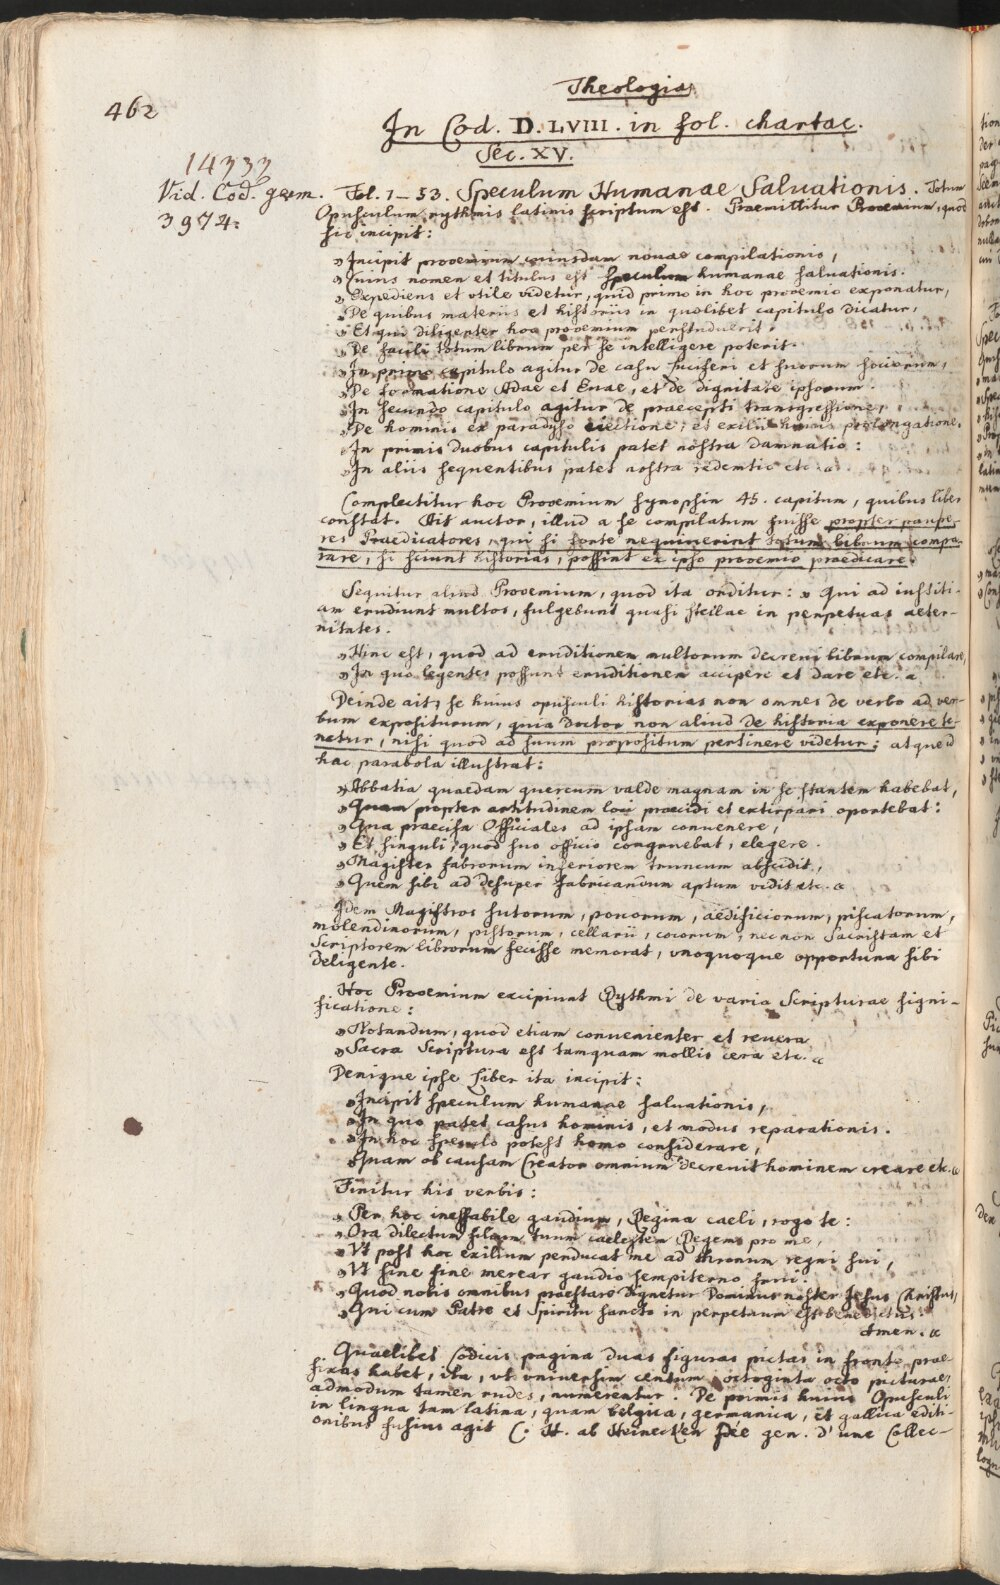 462
Theologia
In Cod. D. LVIII. in fol. chartac.
Sec. XV.
14333
Vid. Cod. germ.
3974.
Fol. 1-53. Speculum Humanae Saluationis. Totum
Opusculum rythmis latinis scriptum est. Praemittitur Prooemium, quod
sic incipit:
„Incipit prooemium cuiusdam nouae compilationis,
„Cuius nomen et titulus est speculum humanae saluationis.
„Expediens et vtile videtur, quid primo in hoc proemio exponatur,
„De quibus materiis et historiis in quolibet capitulo dicatur,
„Et qui diligenter hoc prooemium perstuduerit,
„De facili totum librum per se intelligere poterit.
„In primo capitulo agitur de casu Luciferi et suorum sociorum,
„De formatione Adae et Euae, et de dignitate ipsorum.
„In secundo capitulo agitur de praecepti transgressione,
„De hominis ex paradyso eiectione, et exilii prolongatione.
„In primis duobus capitulis patet nostra damnatio:
„In aliis sequentibus patet nostra redemtio etc. “
Complectitur hoc Prooemium synopsin 45. capitum, quibus liber
constat. Ait auctor, illud a se compilatum fuisse propter paupe-
res Praedicatores, qui si forte nequiuerint totum librum compa-
rare, si sciunt historias, possint ex ipso prooemio praedicare.
Sequitur aliud Prooemium, quod ita orditur: „Qui ad iustiti-
am erudiunt multos, fulgebunt quasi stellae in perpetuas aeter-
nitates.
„Hinc est, quod ad eruditionem multorum decreui librum compilare,
„In quo legentes possunt eruditionem accipere et dare etc. “
Deinde ait, se huius opusculi historias non omnes de verbo ad ver-
bum expositurum, quia Doctor non aliud de historia exponere te-
netur, nisi quod ad suum propositum pertinere videtur; atque id
hac parabola illustrat:
„Abbatia quaedam quercum valde magnam in se stantem habebat,
„Quam propter artitudinem loci praecidi et extirpari oportebat:
„Qua praecisa Officiales ad ipsam conuenere,
„Et singuli, quod suo officio congruebat, elegere.
„Magister fabrorum inferiorem truncum abscidit,
„Quem sibi ad desuper fabricandum aptum vidit etc. “
Idem Magistros sutorum, porcorum, aedificiorum, piscatorum,
molendinorum, pistorum, cellarii, cocorum, nec non Sacristam et
Scriptorem librorum fecisse memorat, vnoquoque opportuna sibi
deligente.
Hoc Prooemium excipiunt Rythmi de varia Scripturae signi-
ficatione:
„Notandum, quod etiam conuenienter et reuera
„Sacra Scriptura est tamquam mollis cera etc. “
Denique ipse Liber ita incipit:
„Incipit speculum humanae saluationis,
„In quo patet casus hominis, et modus reparationis.
„In hoc speculo potest homo considerare,
„Quam ob causam Creator omnium decreuit hominem creare etc. “
Finitur his verbis:
„Per hoc ineffabile gaudium, Regina caeli, rogo te:
„Ora dilectum filium tuum caelestem Regem pro me,
„Vt post hoc exilium perducat me ad thronum regni sui,
„Vt sine fine merear gaudio sempiterno frui.
„Quod nobis omnibus praestare dignetur Dominus noster Jesus Christus,
„Qui cum Patre et Spiritu sancto in perpetuum est benedictus.
Amen. “
Quaelibet Codicis pagina duas figuras pictas in fronte prae-
fixas habet, ita, vt vniuersim centum octoginta octo picturae,
admodum tamen rudes, numerentur. De primis huius Opusculi
in lingua tam latina, quam belgica, germanica, et gallica editi-
onibus fusius agit C. H. ab Heinecken Idée gen. d'une Collec-